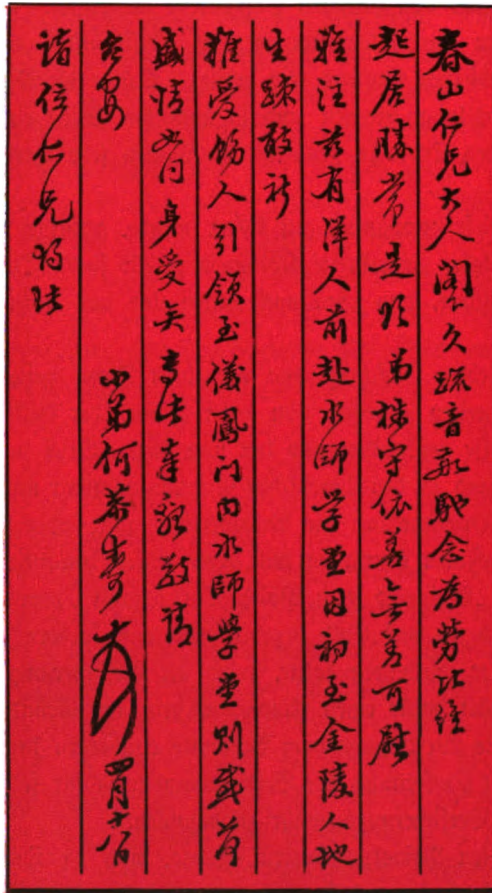 春山仁兄大人閣下久疏音敬馳念為勞比維
起居勝常是頌弟株守依舊無善可慰
雅注茲有洋人前赴水師學堂因初至金陵人地
生疎敢祈
推愛飭人引領至儀鳳門內水師學堂則感荷
盛情如同身受矣專此奉懇敬請
台安
小弟何恭壽 四月十八日
諸位仁兄均此